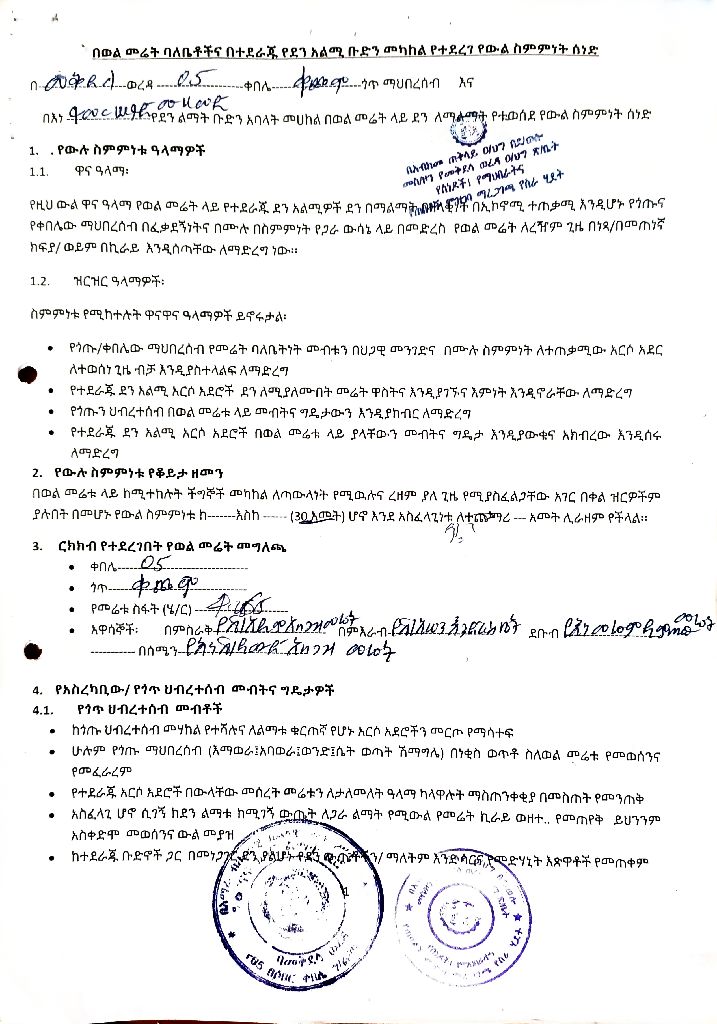 በወል መሬት ባለቤቶችና በተደራጁ የደን አልሚ ቡድን መካከል የተደረገ የውል ስምምነት ሰነድ
በ መቅደላ ወረዳ 05 ቀበሌ ጎጥ ማህበረሰብ እና
በእነ የደን ልማት ቡድን አባላት መሀከል በወል መሬት ላይ ደን ለማልማት የተወሰደ የውል ስምምነት ሰነድ
1. . የውሉ ስምምነቱ ዓላማዎች
1.1. ዋና ዓላማ፡
የዚህ ውል ዋና ዓላማ የወል መሬት ላይ የተደራጁ ደን አልሚዎች ደን በማልማት በኢኮኖሚ ተጠቃሚ እንዲሆኑ የጎጡና
የቀበሌው ማህበረሰብ በፈቃደኝነትና በሙሉ በስምምነት የጋራ ውሳኔ ላይ በመድረስ የወል መሬት ለረዥም ጊዜ በነጻ/በመጠነኛ
ክፍያ/ ወይም በኪራይ እንዲሰጣቸው ለማድረግ ነው፡፡
1.2. ዝርዝር ዓላማዎች፡
ስምምነቱ የሚከተሉት ዋናዋና ዓላማዎች ይኖሩታል፡
• የጎጡ/ቀበሌው ማህበረሰብ የመሬት ባለቤትነት መብቱን በህጋዊ መንገድና በሙሉ ስምምነት ለተጠቃሚው አርሶ አደር
ለተወሰነ ጊዜ ብቻ እንዲያስተላልፍ ለማድረግ
• የተደራጁ ደን አልሚ አርሶ አደሮች ደን ለሚያለሙበት መሬት ዋስትና እንዲያገኙና እምነት እንዲኖራቸው ለማድረግ
• የጎጡን ህብረተሰብ በወል መሬቱ ላይ መብትና ግዴታውን እንዲያከብር ለማድረግ
• የተደራጁ ደን አልሚ አርሶ አደሮች በወል መሬቱ ላይ ያላቸውን መብትና ግዴታ እንዲያውቁና አክብረው እንዲሰሩ
ለማድረግ
2. የውሉ ስምምነቱ የቆይታ ዘመን
በወል መሬቱ ላይ ከሚተከሉት ችግኞች መካከል ለጣውላነት የሚዉሉና ረዘም ያለ ጊዜ የሚያስፈልጋቸው አገር በቀል ዝርዎችም
ያሉበት በመሆኑ የውል ስምምነቱ ከ-------እስከ ------ (30 አመት) ሆኖ እንደ አስፈላጊነቱ ለተጨማሪ --- አመት ሊራዘም የችላል፡፡
3. ርክክብ የተደረገበት የወል መሬት መግለጫ
• ቀበሌ 05
• ጎጥ
• የመሬቱ ስፋት (ሄ/ር)
• አዋሳኞች፡ በምስራቅ በምእራብ ደቡብ
በሰሜን
4. የአስረካቢው/ የጎጥ ህብረተሰብ መብትና ግዴታዎች
4.1. የጎጥ ህብረተሰብ መብቶች
• ከጎጡ ህብረተሰብ መሃከል የተሻሉና ለልማቱ ቁርጠኛ የሆኑ አርሶ አደሮችን መርጦ የማሳተፍ
• ሁሉም የጎጡ ማህበረሰብ (እማወራ፤አባወራ፤ወንድ፤ሴት ወጣት ሽማግሌ) በነቂስ ወጥቶ ስለወል መሬቱ የመወሰንና
የመፈራረም
• የተደራጁ አርሶ አደሮች በውላቸው መሰረት መሬቱን ለታለመለት ዓላማ ካላዋሉት ማስጠንቀቂያ በመስጠት የመንጠቅ
• አስፈላጊ ሆኖ ሲገኝ ከደን ልማቱ ከሚገኝ ውጤት ለጋራ ልማት የሚውል የመሬት ኪራይ ወዘተ.. የመጠየቅ ይህንንም
አስቀድሞ መወሰንና ውል መያዝ
• ከተደራጁ ቡድኖች ጋር በመነጋገር ደን ያልሆኑ የደን ውጤቶችን/ ማለትም እንደ ሳር፣ የመድሃኒት እጽዋቶች የመጠቀም